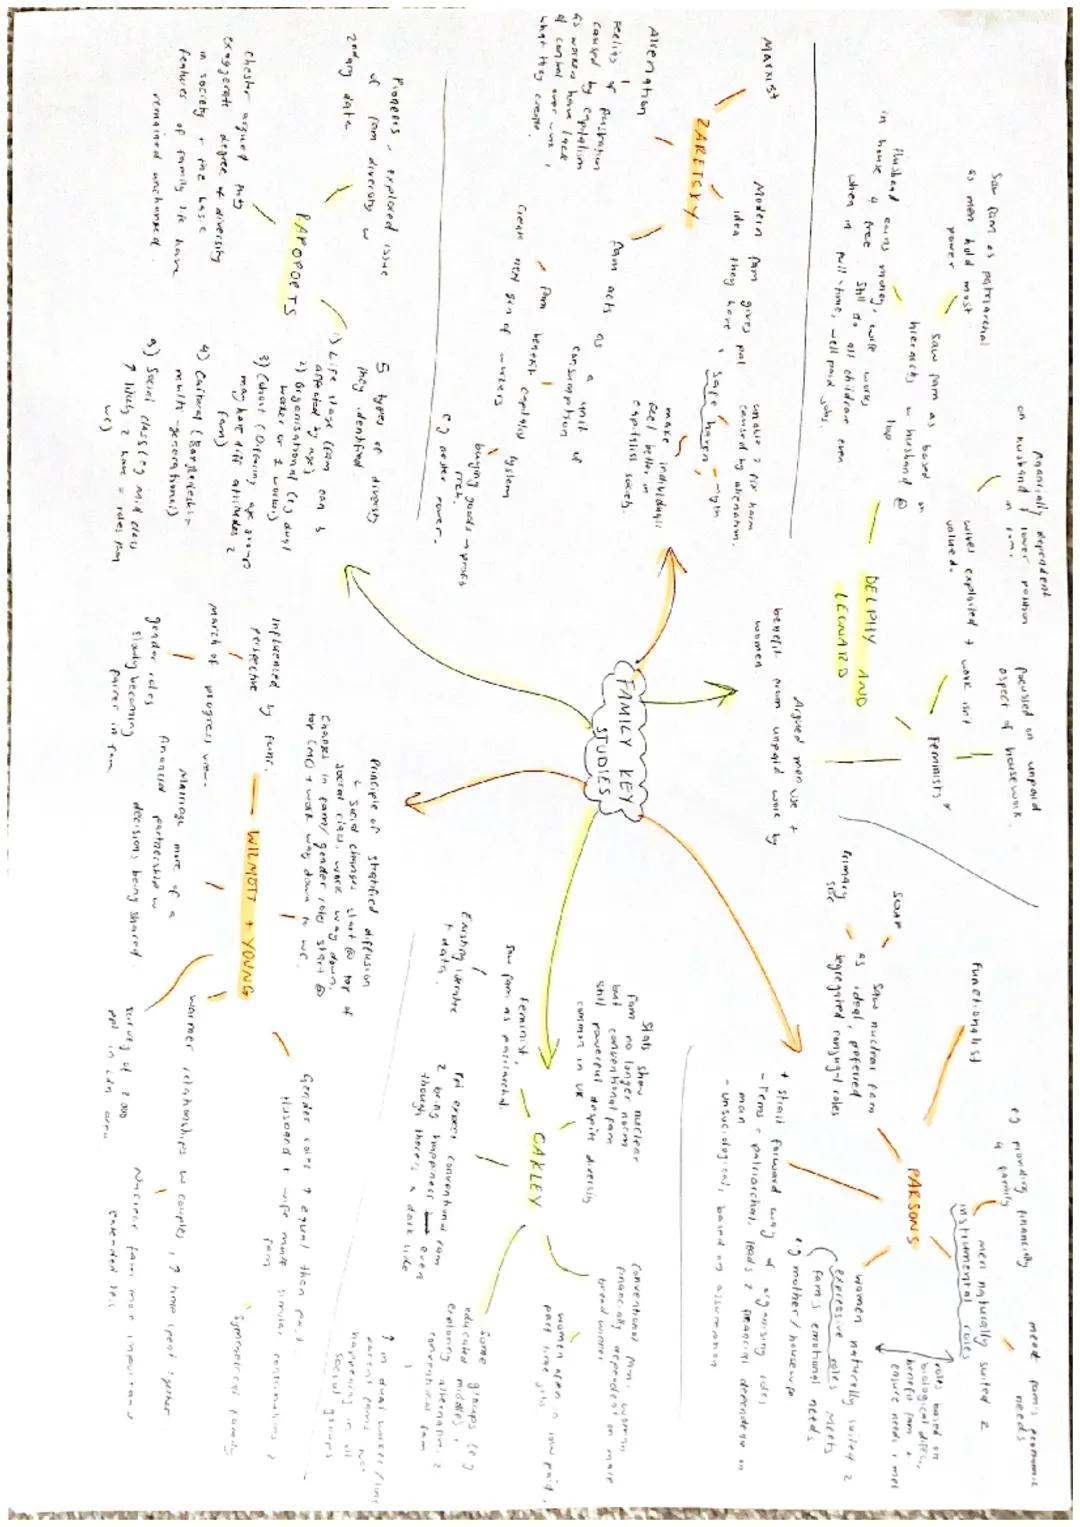 FAMILY KEY
STUDIES
ZARETSKY
Marxist
Alienation
feelings of frustration
caused by capitalism
as workers have lack
of control over work,
what they create.
Modern fam gives ppl
idea they have a safe haven,
myth
unable 2 fix harm
caused by alienation.
make individuals
feel better in
capitalist society.
fam acts as a unit of
consumption
fam benefit capitalist system
create next gen of workers
buying goods → profit
rich.
eg aster power.
DELPHY AND
LEONARD
Feminists
focused on unpaid
aspect of housework
wives exploited + work isn't
valued.
financially dependent
on husband, lower position
in fam.
saw fam as based on
hierarchy w husband @
top
Saw fam as patriarchal
as men hold most
power
Husband earns money, wife works
in house 4 free. Still do all childcare even
when in full-time, well paid jobs.
Argued men use +
benefit from unpaid work by
women
PARSONS
Functionalist
SOAP
Primary
saw nuclear fam
as ideal, preferred
segregated conjugal roles
men naturally suited 2
instrumental roles
eg providing financially
4 family
meet fam's economic
needs
women naturally suited 2
expressive roles meets
fam's emotional needs
eg mother/housewife
roles based on
biological diffs,
benefit fam +
ensure needs r met
+ straight forward way of organising roles
- Fems = patriarchal, leads 2 financial dependence on
man
- unsociological, based on assumption
OAKLEY
Feminist,
saw fam as patriarchal.
Existing literature
+ data.
Stats show nuclear
fam no longer norm
but conventional fam
still powerful despite diversity
common in UK
Conventional fam: woman
financially dependent on male
breadwinner
women often in low paid,
part time jobs
ppl expect conventional fam
2 bring happiness even
though there's a dark side
Some groups (eg
educated middle)
exploring alternatives 2
conventional fam
↑ in dual worker/lone
parent fams not
happening in all
social groups
WILMOTT + YOUNG
Influenced by func.
perspective
march of progress view.
gender roles
slowly becoming
fairer in fam
Marriage more of a
financial partnership w
decisions being shared
Principle of stratified diffusion
↳ social changes start @ top of
social class, work way down.
Changes in fam/gender roles start @
top (MC) + work way down to wc.
warmer relationships w couples, ↑ time spent together
survey of 2000
ppl in Ldn area
Nuclear fam more important
extended less
Gender roles ↑ equal then past
Husband + wife make similar contributions 2
fam
Symmetrical family
RAPOPORTS
Pioneers, explored issue
of fam diversity w
2ndary data
Chester argued they
exaggerate degree of diversity
in society + the basic
features of family life have
remained unchanged.
5 types of diversity
they identified
1) Life stage (fam can b
affected by ages)
2) Organisational (is dual
worker or 1 worker)
3) Cohort (Differing age groups
may have diff attitudes 2
fam)
4) Cultural (Bangladeshi =
multi-generational)
5) Social class (eg mid class
↑ likely 2 have = roles than
wc)